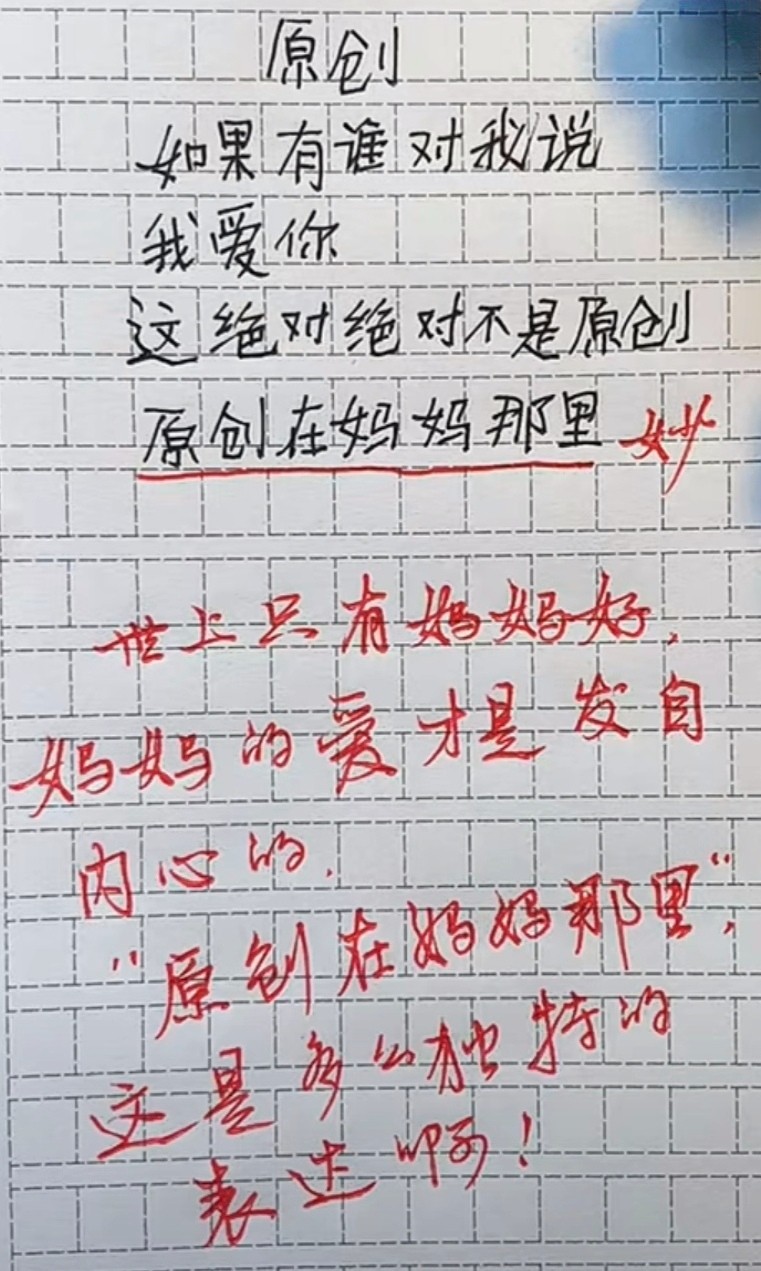 原创
如果有谁对我说
我爱你
这绝对绝对不是原创
原创在妈妈那里 妙
世上只有妈妈好,
妈妈的爱才是发自
内心的.
“原创在妈妈那里”,
这是多么独特的
表达啊!